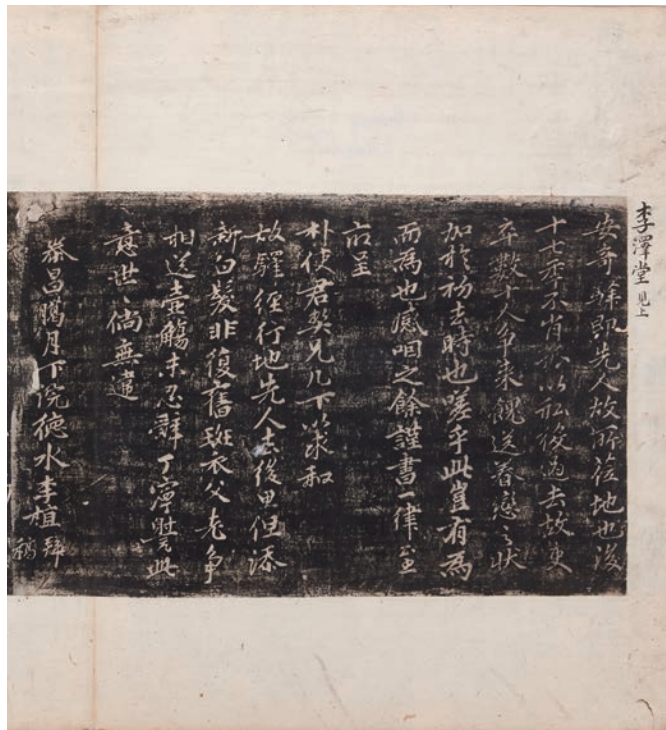 李澤堂 見上
安奇驛即先人故所莅地也後
十七年不肖孤以私後過去故吏
卒數十人爭來觀送眷戀之狀
加於初去時也嗟乎此豈有為
而為也感咽之餘謹書一律呈
前呈
朴使君契兄几下以求和
故驛經行地先人去後思但添
新白髮非復舊斑衣父老爭
相送壺觴未忍辭丁寧譽此
意世〻倘無違
泰昌臘月下浣德水李植拜
稿